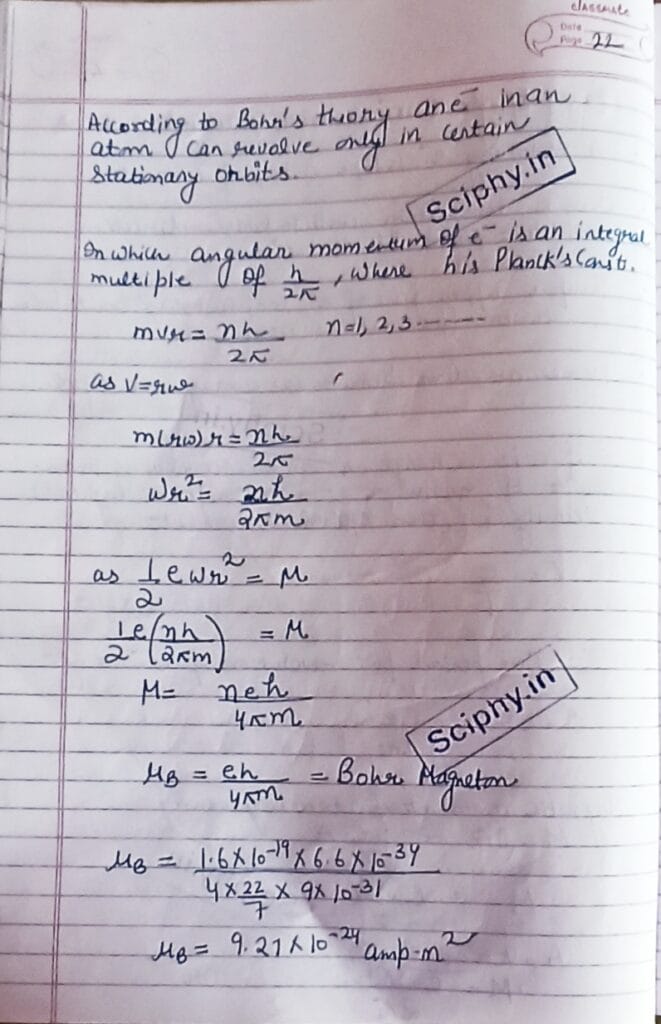 classmate
Date
Page 22
According to Bohr's theory an e⁻ in an
atom can revolve only in certain
Stationary orbits.
Sciphy.in
In which angular momentum of e⁻ is an integral
multiple of h/2π, where h is Planck's Const.
mvr = nh/2π n=1, 2, 3 -------
as V=rω
m(rω)r = nh/2π
ωr² = nh/2πm
as 1/2 eωr² = M
1/2 e(nh/2πm) = M
M = neh/4πm
Sciphy.in
μB = eh/4πm = Bohr Magneton
μB = 1.6×10⁻¹⁹×6.6×10⁻³⁴/4×22/7×9×10⁻³¹
μB = 9.27×10⁻²⁴ amp-m²